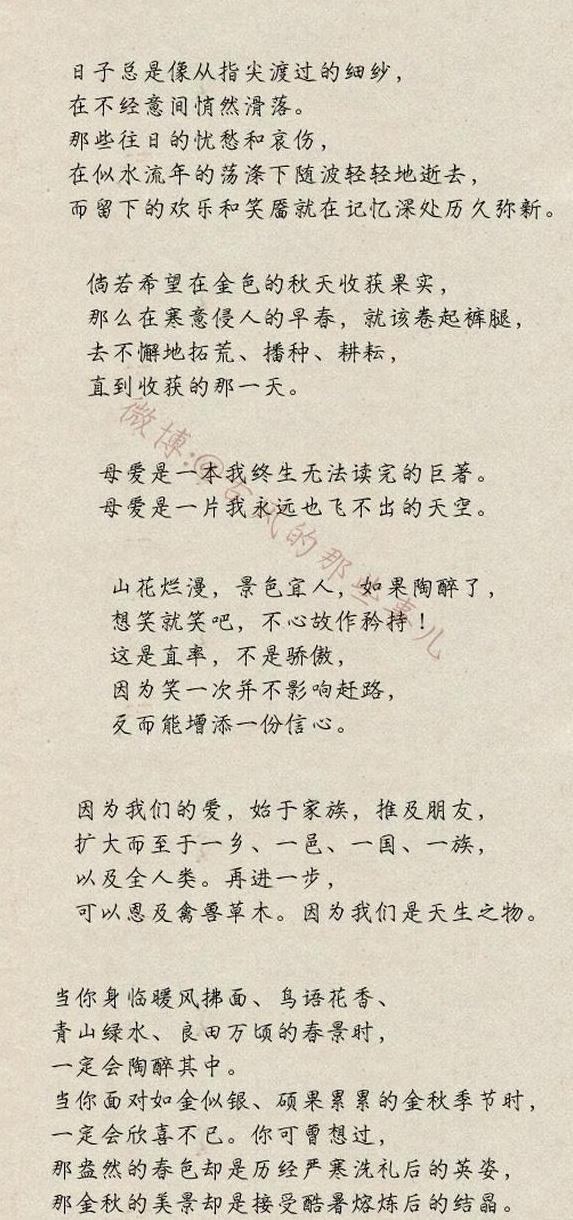 日子总是像从指尖渡过的细纱，
在不经意间悄然滑落。
那些往日的忧愁和哀伤，
在似水流年的荡涤下随波轻轻地逝去，
而留下的欢乐和笑靥就在记忆深处历久弥新。
倘若希望在金色的秋天收获果实，
那么在寒意侵人的早春，就该卷起裤腿，
去不懈地拓荒、播种、耕耘，
直到收获的那一天。
微博:@古风的那些事儿
母爱是一本我终生无法读完的巨著。
母爱是一片我永远也飞不出的天空。
山花烂漫，景色宜人，如果陶醉了，
想笑就笑吧，不心故作矜持！
这是直率，不是骄傲，
因为笑一次并不影响赶路，
反而能增添一份信心。
因为我们的爱，始于家族，推及朋友，
扩大而至于一乡、一邑、一国、一族，
以及全人类。再进一步，
可以恩及禽兽草木。因为我们是天生之物。
当你身临暖风拂面、鸟语花香、
青山绿水、良田万顷的春景时，
一定会陶醉其中。
当你面对如金似银、硕果累累的金秋季节时，
一定会欣喜不已。你可曾想过，
那盎然的春色却是历经严寒洗礼后的英姿，
那金秋的美景却是接受酷暑熔炼后的结晶。